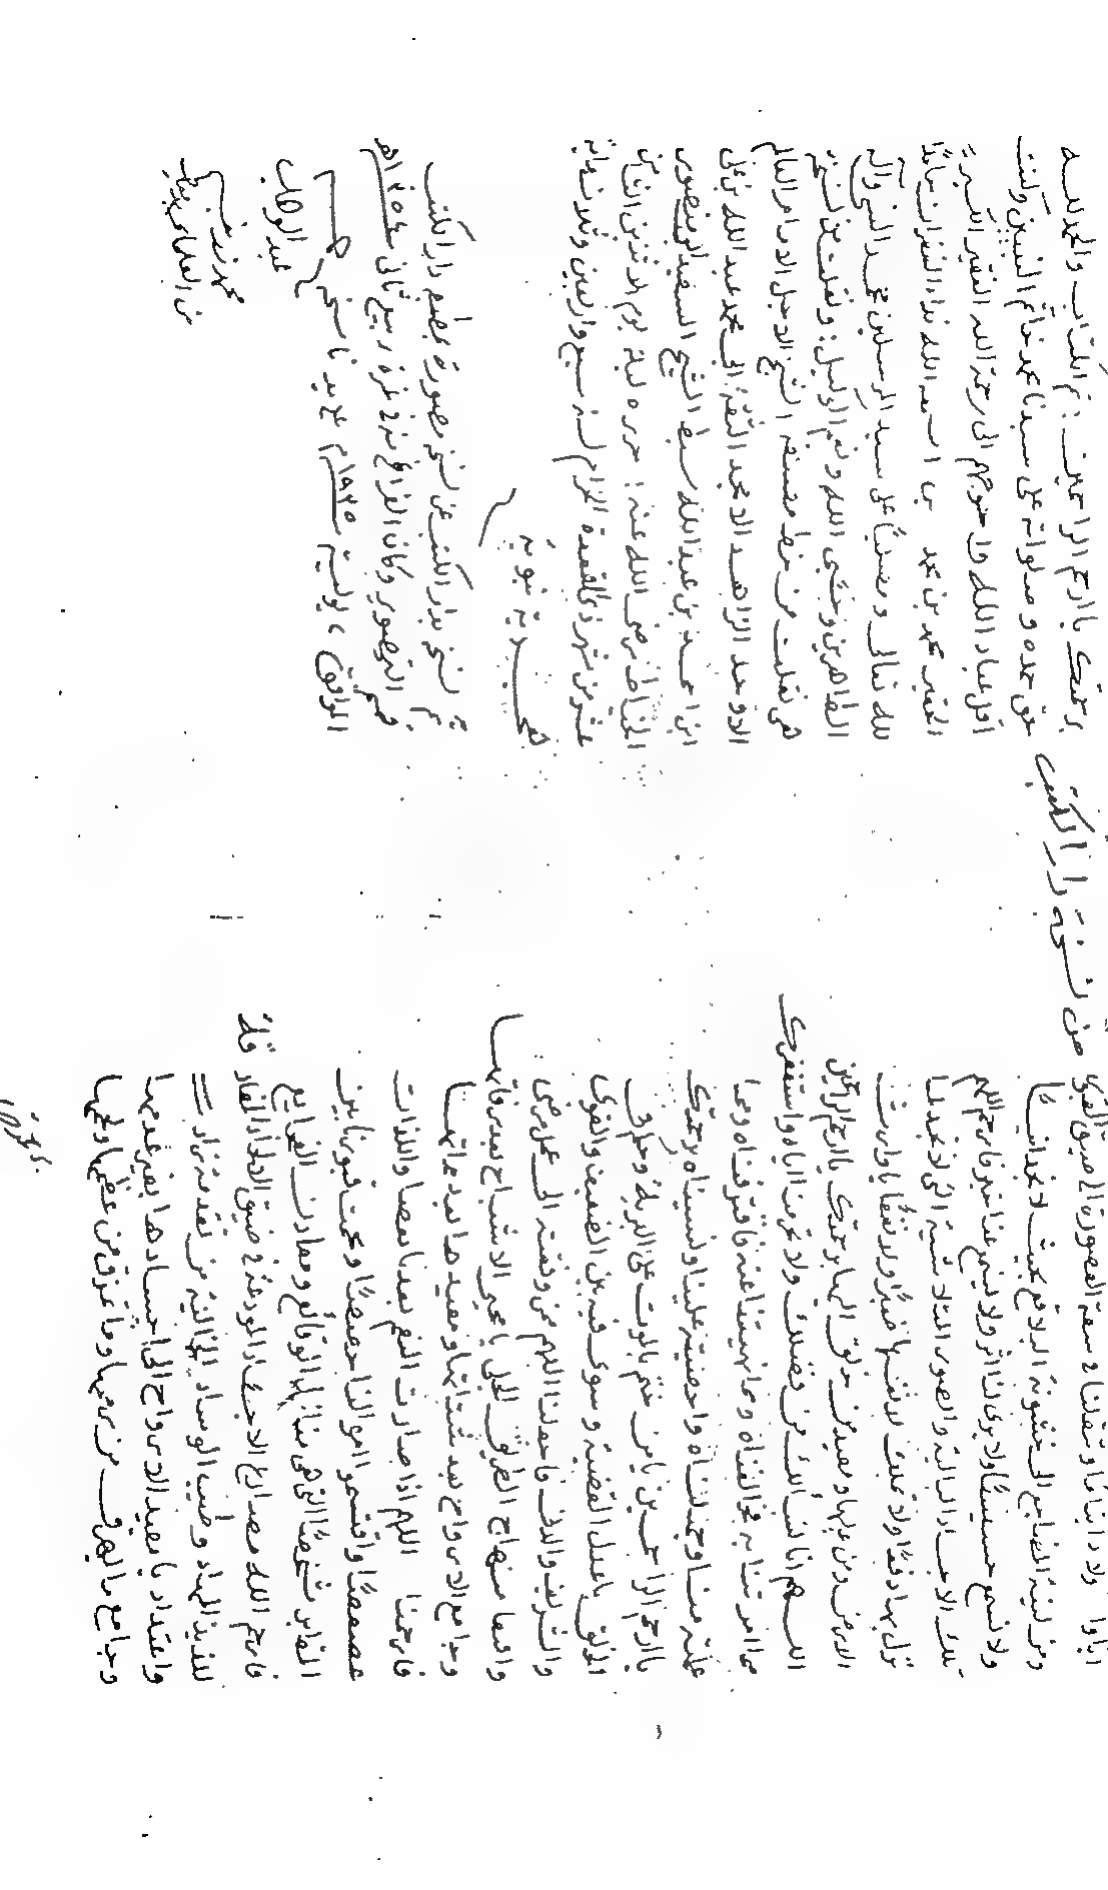 أباوا ولادابنا وانتقلنا من سعة القصور الى ضيق القبور
ومن لينة المضاجع الى خشونة البلاقع بحيث لا نجد انيسًا
ولا نسمع حسيسًا ولا يرى لنا اثر ولا ينبي عنا خبر فارحم اللهم
تلك الاجساد البالية والصور المتلاشية التي لا تجد لما
نزل بها دفعًا ولا تملك لانفسها ضرًا ولا نفعًا يا وارث
الارض ومن عليها ومعيد من خلق اليها برحمتك يا ارحم الراحمين
اللهم انا نسألك من فضلك ولا نحرمنا اياه ونستغفرك
مما امرتنا به فخالفناه ومما نهيتنا عنه فاقترفناه ومما
علمته منا وجهلناه واحصيته علينا ونسيناه برحمتك
يا ارحم الراحمين يا من ختم بالموت على البرية وحارت
الخلق باعدل القضية وسوى فيه بين الضعيف والقوى
والشريف والدنى فاجعلنا اللهم من وفقته الى عمل مرضى
واتبعا منهاج الطريق الجلى يا محيى الاشباح بعد وفاتها
وجامع الارواح بعد شتاتها ومعيدها بعد مماتها
فارحمنا اللهم اذا صارت النعم بعدنا قصصا واللذات
غصصًا واقتسموا اموالنا حصصًا ونحت قبورنا بين
المقابر شخوصًا التي هي منازل الوقائع ومعادن الفجايع
فارحم الله مصارع الاجساد المودعة في ضيق الالحاد المفارقة
للذيذ المهاد وطيب الوساد الخالية من تقدمة زاد
واعتداد يا معيد الارواح الى اجسادها بغير عدمها
وجامع ما تفرق من رممها وما تمزق من عظمها ولحمها
برحمتك يا ارحم الراحمين : تم الكتاب والحمد لله
حق حمده وصلواته على سيدنا محمد خاتم النبيين وكتب
اقل عباد الله واحوجهم الى رحمة الله الفقير الكسير
الحقير محمد بن محمد بن اسعد الله نداء الغفران حامدًا
لله تعالى ومصليًا على سيد المرسلين محمد النبي وآله
الطاهرين وحسبى الله ونعم الوكيل : ونقلت من نسخة
هى نقلت من خط مصنفه الشيخ الاجل الامام العالم
الاوحد الزاهد الامجد الثقة ابى محمد عبد الله بن على
ابن احمد بن عبد الله سبط الشيخ السعيد ابى منصور
الخياط رضى الله عنه : حرره ليلة يوم الاثنين الثامن
عشر من شهر ذى القعدة الحرام لسنة سبع واربعين وثلاثمائة
هجرية نبوية
تم نسخه بدار الكتب عن نسخة مصورة بقسم دار الكتب
قسم التصوير وكان الفراغ منه في غرة ربيع ثانى ١٣٥٤ هـ
الموافق ٢ يوليه ١٩٣٥ م على يد ناسخه
عبد الوهاب
محمد
من العلماء
من نسخة دار الكتب